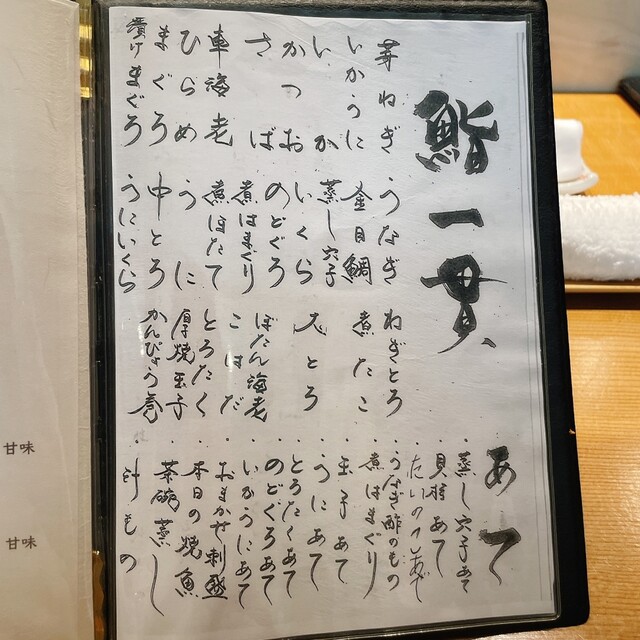 鮨一貫
芽ねぎ
いかうに
いか
かつお
さば
車海老
ひらめ
まぐろ
漬けまぐろ
うなぎ
金目鯛
蒸し穴子
いくら
のどぐろ
煮はまぐり
煮ほたて
うに
中とろ
うにいくら
ねぎとろ
煮たこ
大とろ
ぼたん海老
こはだ
とろたく
厚焼玉子
かんぴょう巻
あて
・蒸し穴子あて
・貝柱あて
・うなぎ酢のもの
・煮はまぐり
・玉子あて
・うにあて
・とろたくあて
・のどぐろあて
・いかうにあて
・おまかせ刺盛
・本日の焼魚
・茶碗蒸し
・汁もの
甘味
甘味